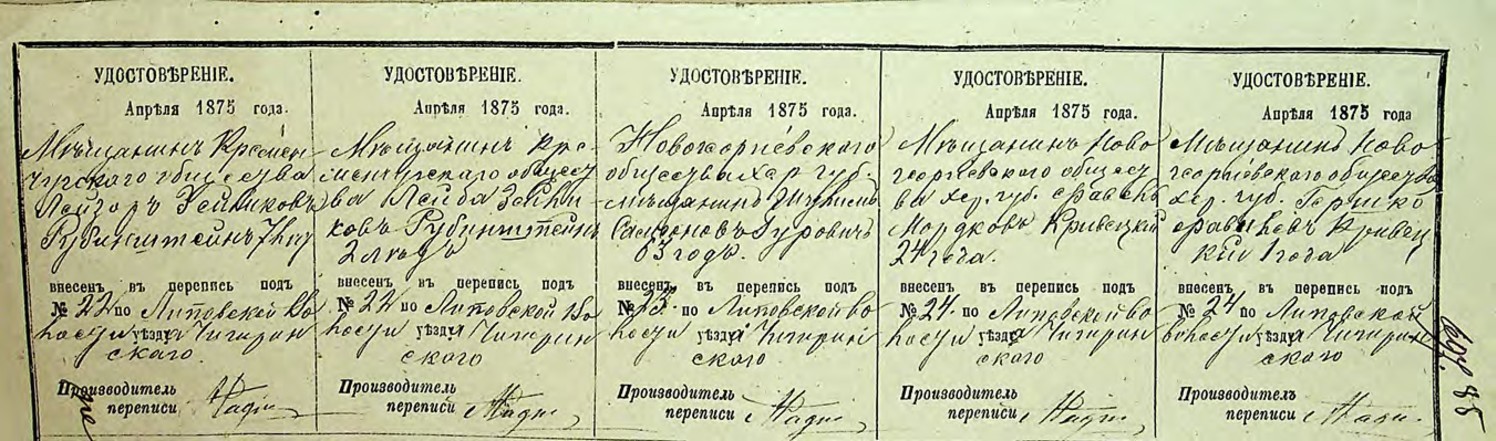 УДОСТОВѢРЕНІЕ.
Апрѣля 1875 года.
Мѣщанинъ Кремен-
чугскаго общества
Лейзоръ Хейников
Рубинштейнъ 7
внесенъ въ перепись подъ
№ 22 по Липовской Во
лости уѣзда Чигирин
скаго.
Производитель
переписи
УДОСТОВѢРЕНІЕ.
Апрѣля 1875 года.
Мѣщанинъ Кре-
менчугскаго общест
ва Лейба
ковъ Рубинштейнъ
2 
внесенъ въ перепись подъ
№ 22 по Липовской Во
лости уѣзда Чигирин
скаго
Производитель
переписи
УДОСТОВѢРЕНІЕ.
Апрѣля 1875 года.
Новогеоргіевскаго
общества Хер. губ.
мѣщанинъ
Гуровичъ
63 года.
внесенъ въ перепись подъ
№ 23. по Липовской во
лости уѣзда Чигирин
скаго
Производитель
переписи
УДОСТОВѢРЕНІЕ.
Апрѣля 1875 года.
Мѣщанинъ Ново
георгіевскаго общест
ва Хер. губ.
Мордковъ Кривецкій
24 года.
внесенъ въ перепись подъ
№ 24. по Липовской во
лости уѣзда Чигирин
скаго
Производитель
переписи
УДОСТОВѢРЕНІЕ.
Апрѣля 1875 года
Мѣщанинъ Ново
георгіевскаго общества
Хер. губ. Гершко
Кривец
кій 1 года
внесенъ въ перепись подъ
№ 24 по Липовской
волости уѣзда Чигирин
скаго
Производитель
переписи